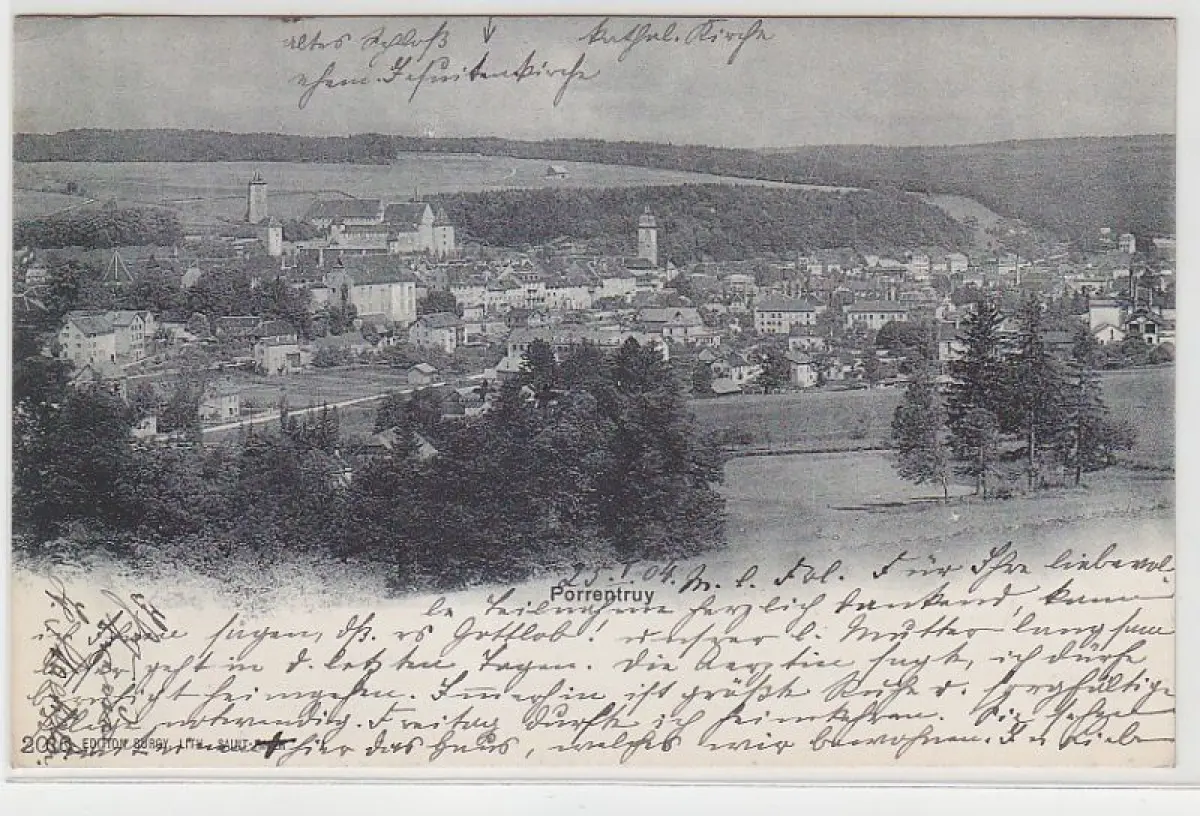 altes Schloß ↓ kathol. Kirche
ehem. Jesuitenkirche
25. 04. M. l. Frl. Für Ihre liebevol-
Porrentruy
le Teilnahme herzlich dankend, kann
ich sagen, dß. es Gottlob! unserer l. Mutter langsam
besser geht in d. letzten Tagen. Die Aerztin sagte, ich dürfe
heimgehen. Immerhin ist größte Ruhe u. sorgfältige
notwendig. Freitag durfte ich heimkehren. Sie sehen
hier das Haus, welches wir bewohnen. In Liebe
EDITION BURGY, LITH. SAINT-